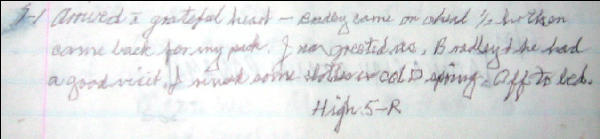 Arrived c̄ grateful heart – Bradley came on ahead ½ hr then
came back for my pack. J ran greeted us, Bradley & he had
a good visit. I rinsed some clothes in cold spring. Off to bed.
High 5-R